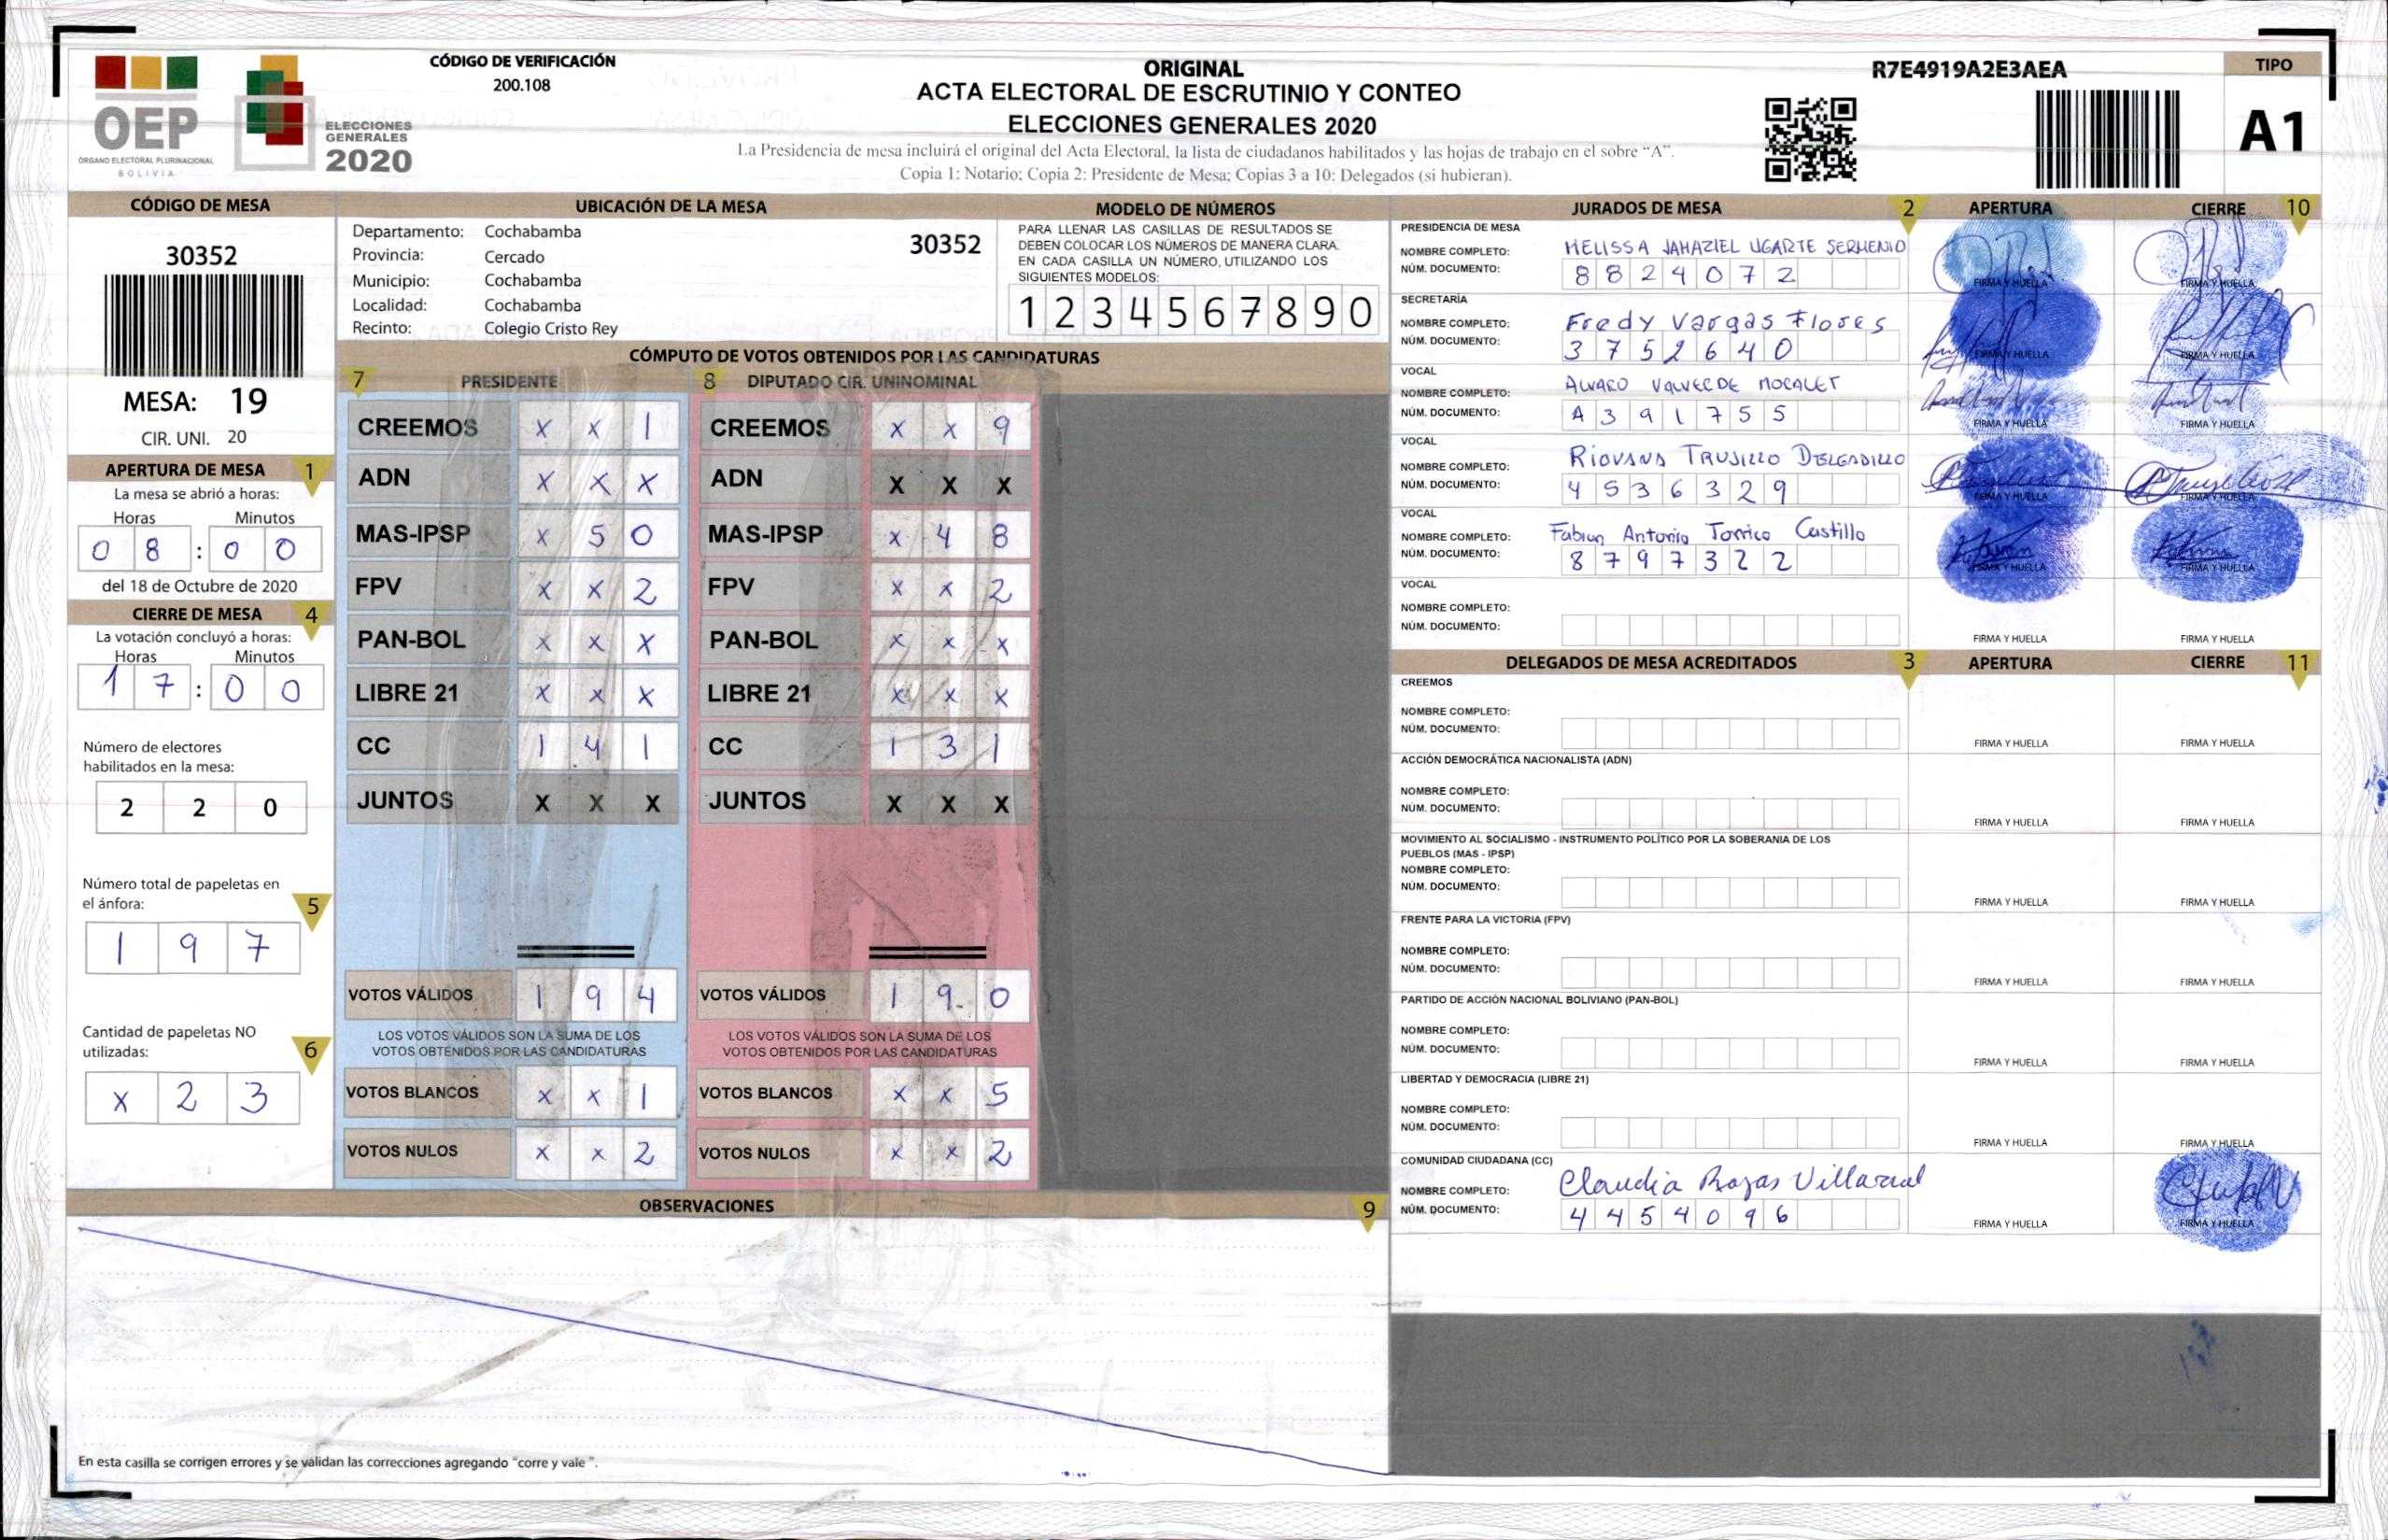 CÓDIGO DE VERIFICACIÓN
200.108
ORIGINAL
ACTA ELECTORAL DE ESCRUTINIO Y CONTEO
ELECCIONES GENERALES 2020
La Presidencia de mesa incluirá el original del Acta Electoral, la lista de ciudadanos habilitados y las hojas de trabajo en el sobre “A”.
Copia 1: Notario; Copia 2: Presidente de Mesa; Copias 3 a 10: Delegados (si hubieran).
R7E4919A2E3AEA
TIPO
A1
OEP
ÓRGANO ELECTORAL PLURINACIONAL
BOLIVIA
ELECCIONES
GENERALES
2020
CÓDIGO DE MESA
30352
MESA: 19
CIR. UNI. 20
APERTURA DE MESA 1
La mesa se abrió a horas:
Horas Minutos
0 8 : 0 0
del 18 de Octubre de 2020
CIERRE DE MESA 4
La votación concluyó a horas:
Horas Minutos
1 7 : 0 0
Número de electores
habilitados en la mesa:
2 2 0
Número total de papeletas en
el ánfora: 5
1 9 7
Cantidad de papeletas NO
utilizadas: 6
x 2 3
UBICACIÓN DE LA MESA
Departamento: Cochabamba 30352
Provincia: Cercado
Municipio: Cochabamba
Localidad: Cochabamba
Recinto: Colegio Cristo Rey
MODELO DE NÚMEROS
PARA LLENAR LAS CASILLAS DE RESULTADOS SE
DEBEN COLOCAR LOS NÚMEROS DE MANERA CLARA.
EN CADA CASILLA UN NÚMERO, UTILIZANDO LOS
SIGUIENTES MODELOS:
1 2 3 4 5 6 7 8 9 0
CÓMPUTO DE VOTOS OBTENIDOS POR LAS CANDIDATURAS
7 PRESIDENTE
CREEMOS x x 1
ADN x x x
MAS-IPSP x 5 0
FPV x x 2
PAN-BOL x x x
LIBRE 21 x x x
CC 1 4 1
JUNTOS X X X
VOTOS VÁLIDOS 1 9 4
LOS VOTOS VÁLIDOS SON LA SUMA DE LOS
VOTOS OBTENIDOS POR LAS CANDIDATURAS
VOTOS BLANCOS x x 1
VOTOS NULOS x x 2
8 DIPUTADO CIR. UNINOMINAL
CREEMOS x x 9
ADN X X X
MAS-IPSP x 4 8
FPV x x 2
PAN-BOL x x x
LIBRE 21 x x x
CC 1 3 1
JUNTOS X X X
VOTOS VÁLIDOS 1 9 0
LOS VOTOS VÁLIDOS SON LA SUMA DE LOS
VOTOS OBTENIDOS POR LAS CANDIDATURAS
VOTOS BLANCOS x x 5
VOTOS NULOS x x 2
OBSERVACIONES 9
En esta casilla se corrigen errores y se validan las correcciones agregando “corre y vale ”.
JURADOS DE MESA 2 APERTURA CIERRE 10
PRESIDENCIA DE MESA
NOMBRE COMPLETO: MELISSA JAHAZIEL UGARTE SERMENIO
NÚM. DOCUMENTO: 8 8 2 4 0 7 2
FIRMA Y HUELLA FIRMA Y HUELLA
SECRETARÍA
NOMBRE COMPLETO: Fredy Vargas Flores
NÚM. DOCUMENTO: 3 7 5 2 6 4 0
FIRMA Y HUELLA FIRMA Y HUELLA
VOCAL
NOMBRE COMPLETO: ALVARO VALVERDE MOCALET
NÚM. DOCUMENTO: 4 3 9 1 7 5 5
FIRMA Y HUELLA FIRMA Y HUELLA
VOCAL
NOMBRE COMPLETO: RIOVANA TRUJILLO DELGADILLO
NÚM. DOCUMENTO: 4 5 3 6 3 2 9
FIRMA Y HUELLA FIRMA Y HUELLA
VOCAL
NOMBRE COMPLETO: Fabian Antonio Torrico Castillo
NÚM. DOCUMENTO: 8 7 9 7 3 2 2
FIRMA Y HUELLA FIRMA Y HUELLA
VOCAL
NOMBRE COMPLETO:
NÚM. DOCUMENTO:
FIRMA Y HUELLA FIRMA Y HUELLA
DELEGADOS DE MESA ACREDITADOS 3 APERTURA CIERRE 11
CREEMOS
NOMBRE COMPLETO:
NÚM. DOCUMENTO:
FIRMA Y HUELLA FIRMA Y HUELLA
ACCIÓN DEMOCRÁTICA NACIONALISTA (ADN)
NOMBRE COMPLETO:
NÚM. DOCUMENTO:
FIRMA Y HUELLA FIRMA Y HUELLA
MOVIMIENTO AL SOCIALISMO - INSTRUMENTO POLÍTICO POR LA SOBERANIA DE LOS
PUEBLOS (MAS - IPSP)
NOMBRE COMPLETO:
NÚM. DOCUMENTO:
FIRMA Y HUELLA FIRMA Y HUELLA
FRENTE PARA LA VICTORIA (FPV)
NOMBRE COMPLETO:
NÚM. DOCUMENTO:
FIRMA Y HUELLA FIRMA Y HUELLA
PARTIDO DE ACCIÓN NACIONAL BOLIVIANO (PAN-BOL)
NOMBRE COMPLETO:
NÚM. DOCUMENTO:
FIRMA Y HUELLA FIRMA Y HUELLA
LIBERTAD Y DEMOCRACIA (LIBRE 21)
NOMBRE COMPLETO:
NÚM. DOCUMENTO:
FIRMA Y HUELLA FIRMA Y HUELLA
COMUNIDAD CIUDADANA (CC)
NOMBRE COMPLETO: Claudia Rojas Villarreal
NÚM. DOCUMENTO: 4 4 5 4 0 9 6
FIRMA Y HUELLA FIRMA Y HUELLA